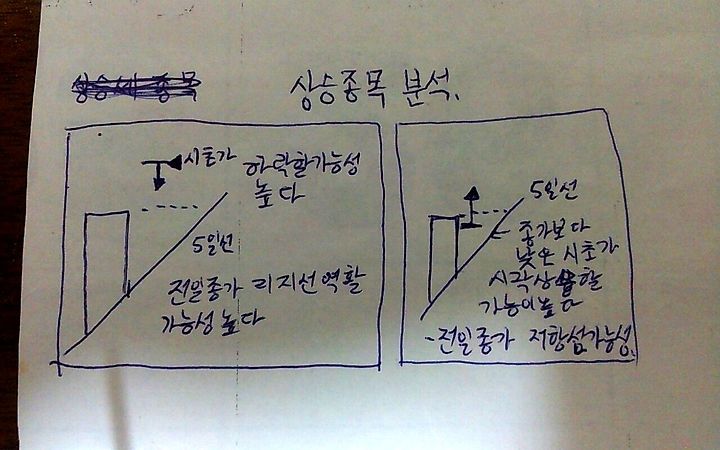 상승세 종목
상승종목 분석.
시초가
하락할가능성
높다
5일선
전일종가 리지선역활
가능성 높다
5일선
종가보다
낮은 시초가
시작상승할
가능이높다
-전일종가 저항섬가능성.